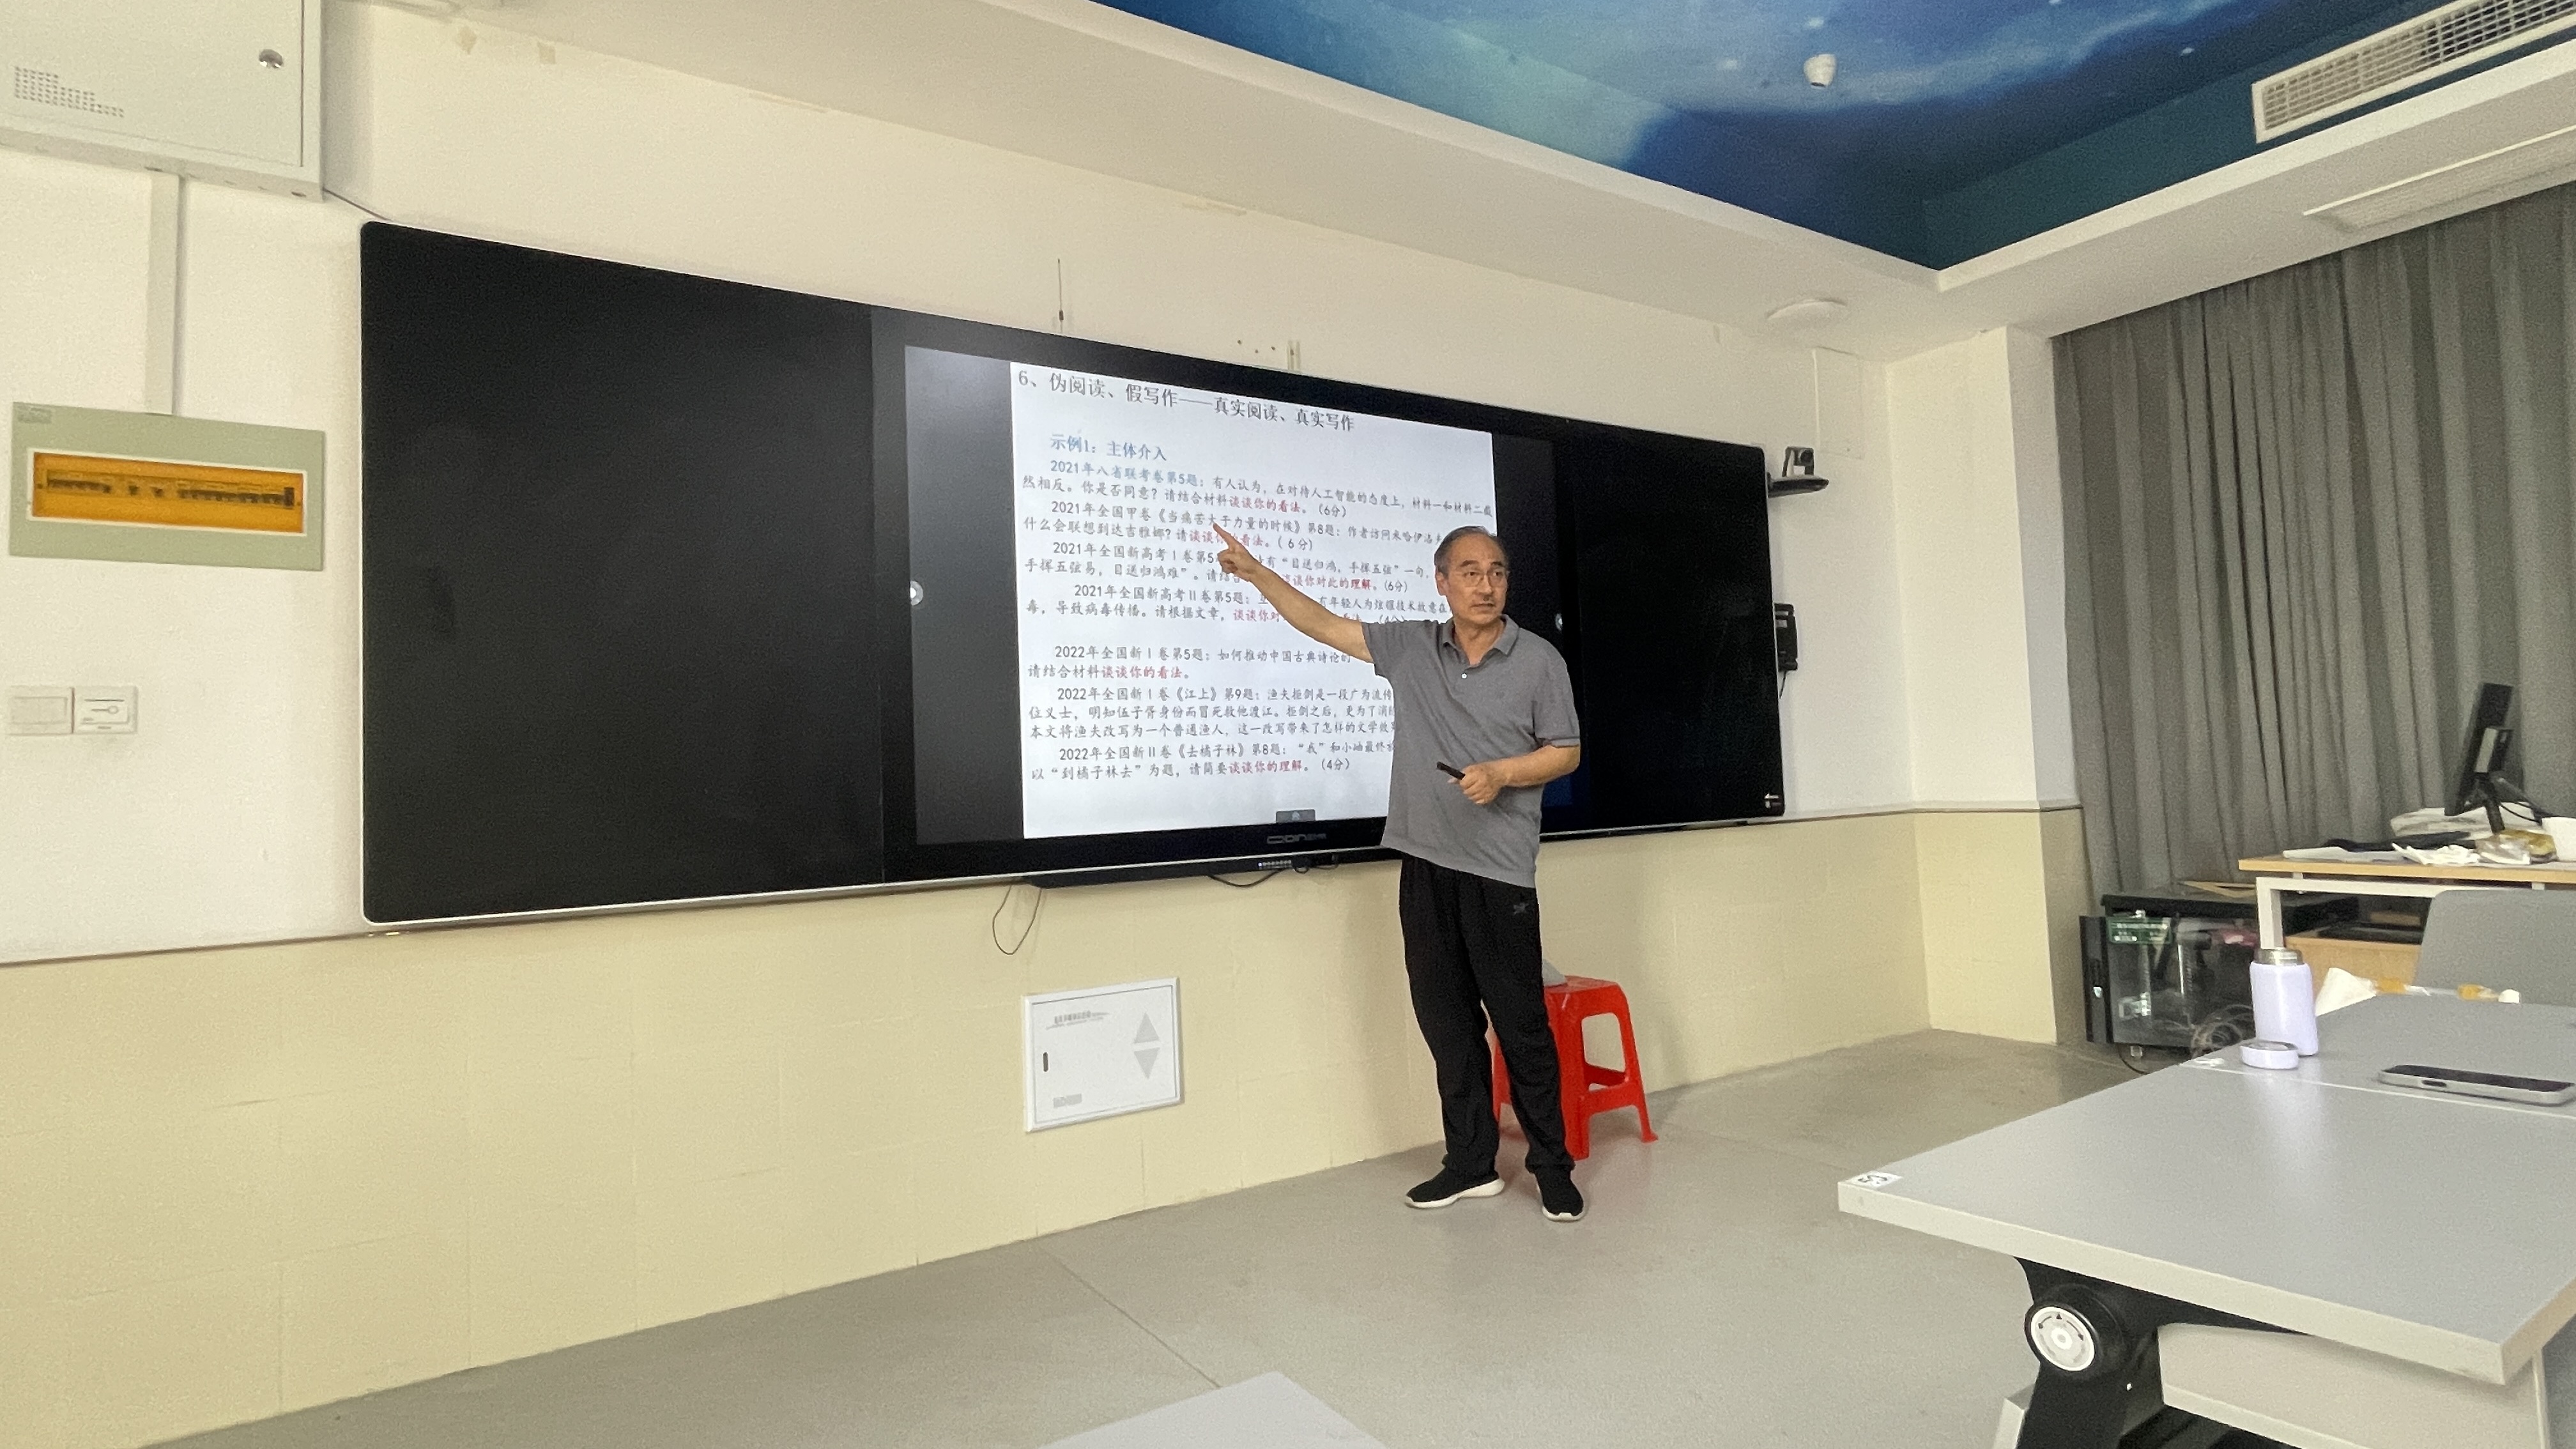 6、伪阅读、假写作——真实阅读、真实写作
示例1：主体介入
2021年八省联考卷第5题：有人认为，在对待人工智能的态度上，材料一和材料二截
然相反。你是否同意？请结合材料谈谈你的看法。（6分）
2021年全国甲卷《当痛苦大于力量的时候》第8题：作者访问米哈伊洛夫
什么会联想到达吉雅娜？请谈谈你的看法。（6分）
2021年全国新高考Ⅰ卷第5 有“目送归鸿，手挥五弦”一句，
手挥五弦易，目送归鸿难”。请结合 谈谈你对此的理解。（6分）
2021年全国新高考Ⅱ卷第5题： 有年轻人为炫耀技术故意在
毒，导致病毒传播。请根据文章，谈谈你对 看法。（4分）
2022年全国新Ⅰ卷第5题：如何推动中国古典诗论的
请结合材料谈谈你的看法。
2022年全国新Ⅰ卷《江上》第9题：渔夫拒剑是一段广为流传
位义士，明知伍子胥身份而冒死救他渡江。拒剑之后，更为了消
本文将渔夫改写为一个普通渔人，这一改写带来了怎样的文学效
2022年全国新Ⅱ卷《去橘子林》第8题：“我”和小
以“到橘子林去”为题，请简要谈谈你的理解。（4分）